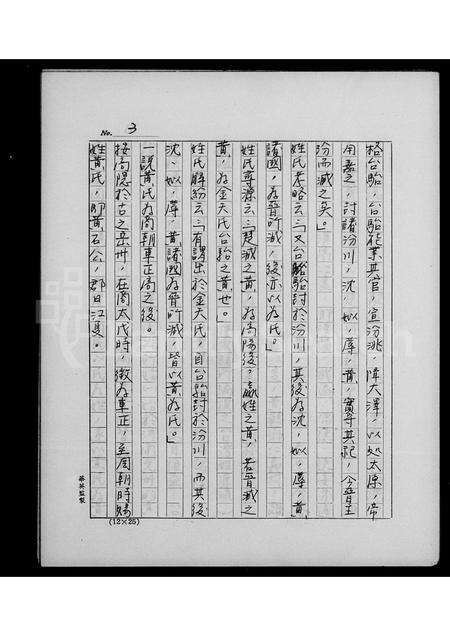 No. 3
格台駘，台駘能業其官，宣汾洮，障大澤，以处太原，帝
用嘉之，封諸汾川，沈、姒、蓐、黄，實守其祀，今晉主
汾而滅之矣。」
姓氏考略云：「又台駘封於汾川，其後為沈、姒、蓐、黄
諸國，為晉所滅，後亦以為氏。」
姓氏尋源云：「楚滅之黄，為高陽後，嬴姓之黄，若晉滅之
黄，為金天氏台駘之黄也。」
姓氏解紛云：「有謂出於金天氏，自台駘封於汾川，而其後
沈、姒、蓐、黄諸國為晉所滅，皆以黄為氏。」
一說黄氏為商朝車正高之後。
按高隱於古之 州，在周太戊時，徵為車正，至周朝時賜
姓黄氏，即黄石公，郡曰江夏。
(12×25)